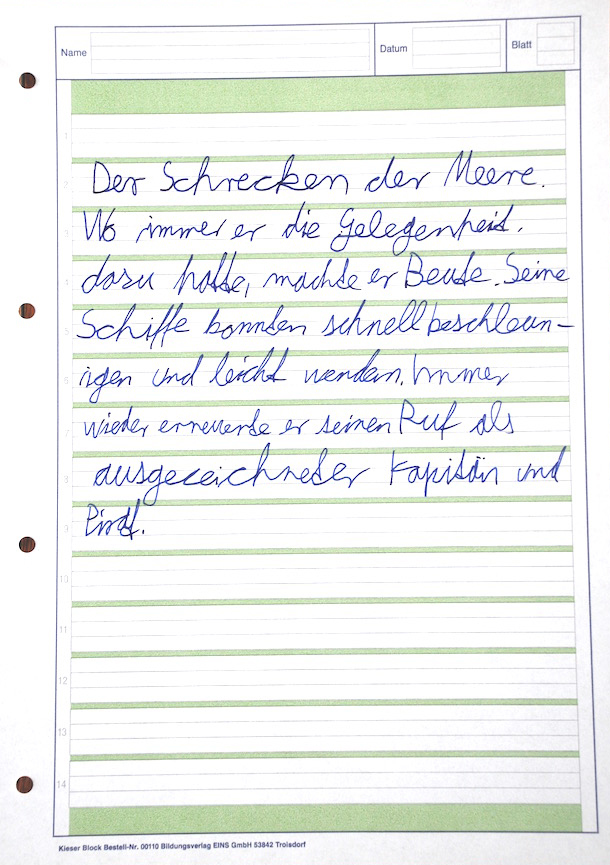 Name
Datum
Blatt
1
2
Der Schrecken der Meere.
3
Wo immer er die Gelegenheit.
4
dazu hatte, machte er Beute. Seine
5
Schiffe konnten schnell beschleun-
6
igen und leicht wenden. Immer
7
wieder erneuerte er seinen Ruf als
8
ausgezeichneter Kapitän und
9
Pirat.
10
11
12
13
14
Kieser Block Bestell-Nr. 00110 Bildungsverlag EINS GmbH 53842 Troisdorf